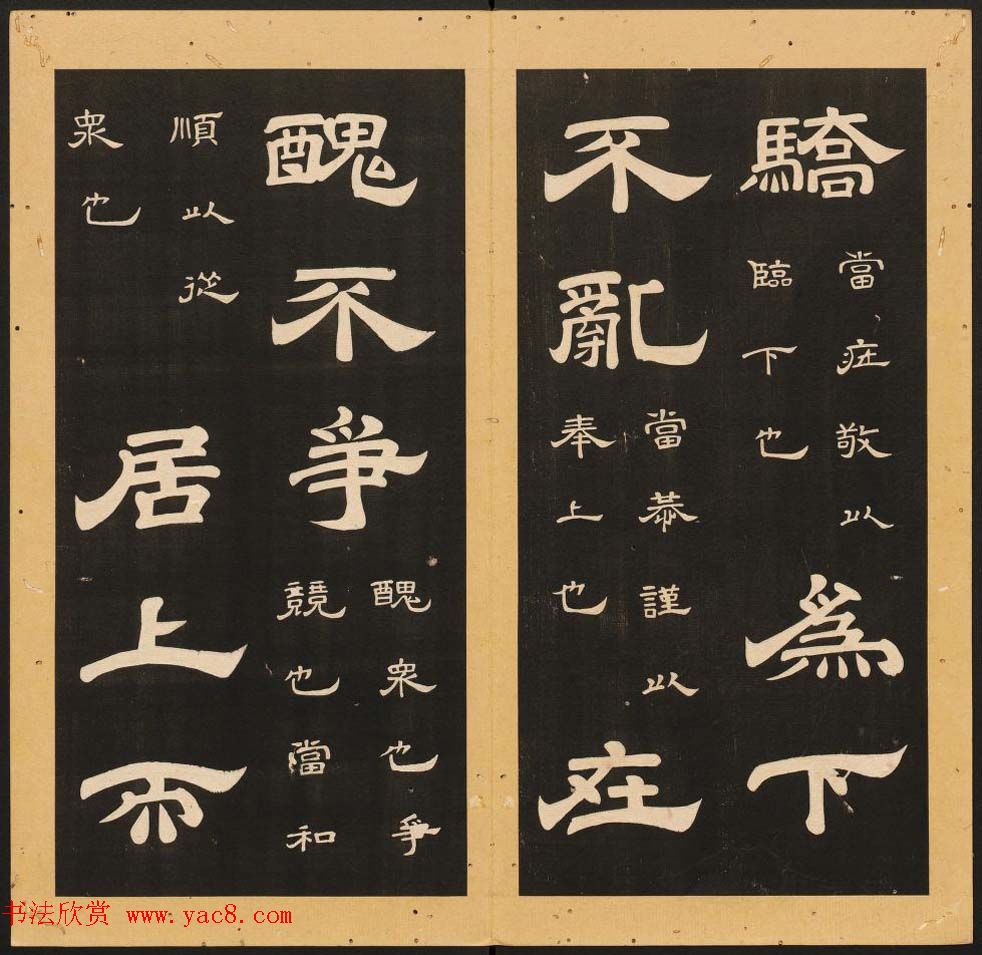 驕
當莊敬以
臨下也
爲下
不亂
當恭謹以
奉上也
在
醜不爭
醜衆也爭
競也當和
順以從
衆也
居上而
书法欣赏 www.yac8.com